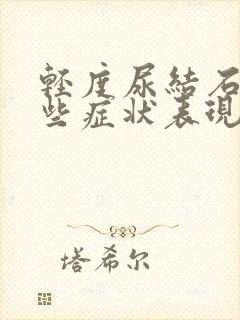 輕度尿結石
些症狀表現
塔希尔